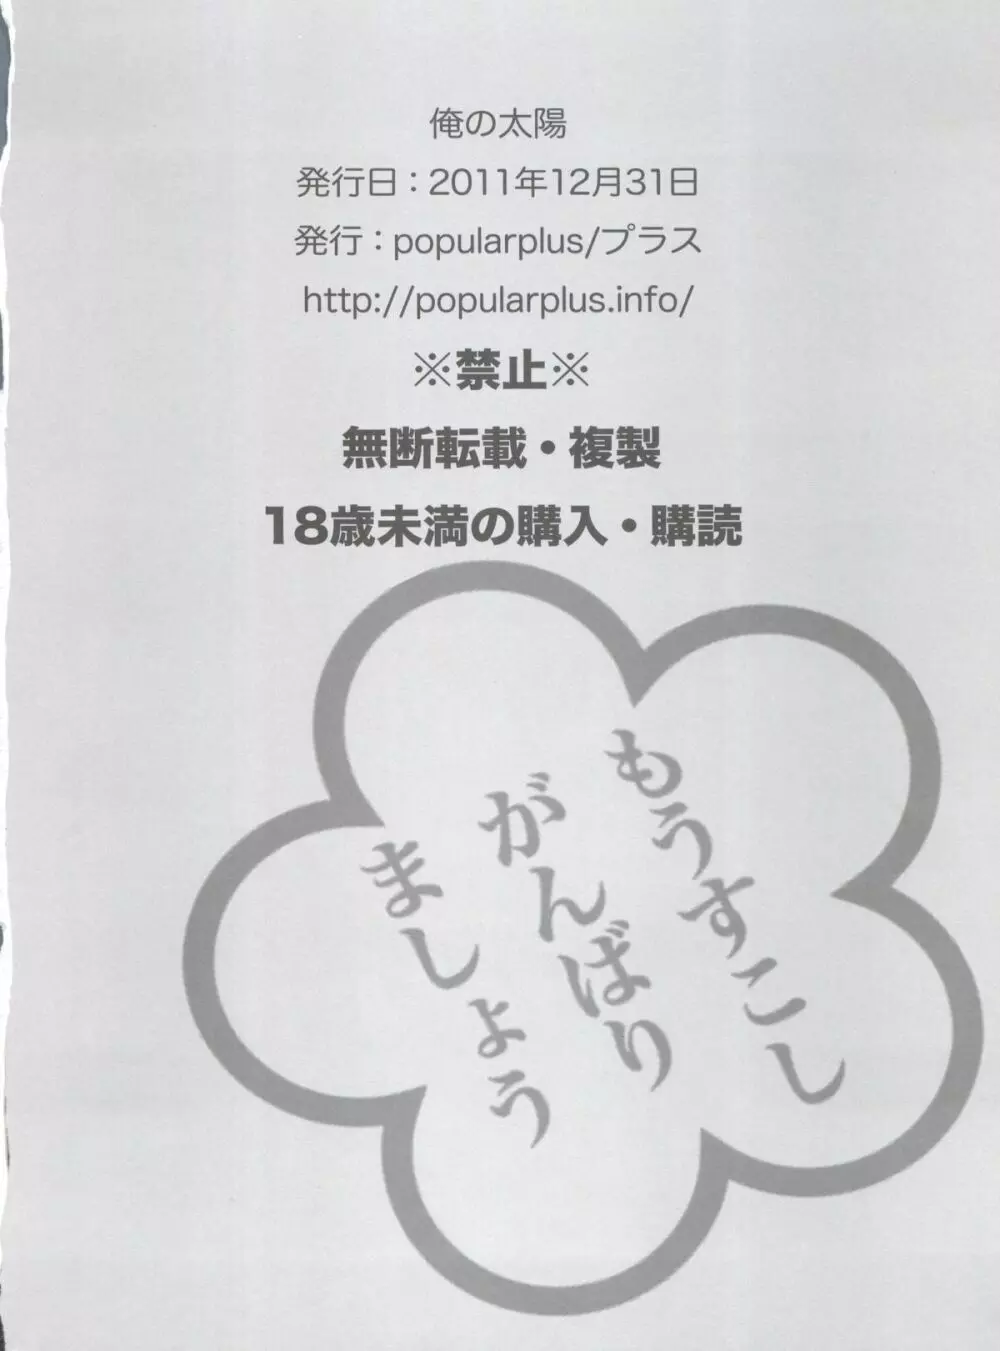 俺の太陽
発行日：2011年12月31日
発行：popularplus/プラス
http://popularplus.info/
※禁止※
無断転載・複製
18歳未満の購入・購読
もうすこし
がんばり
ましょう